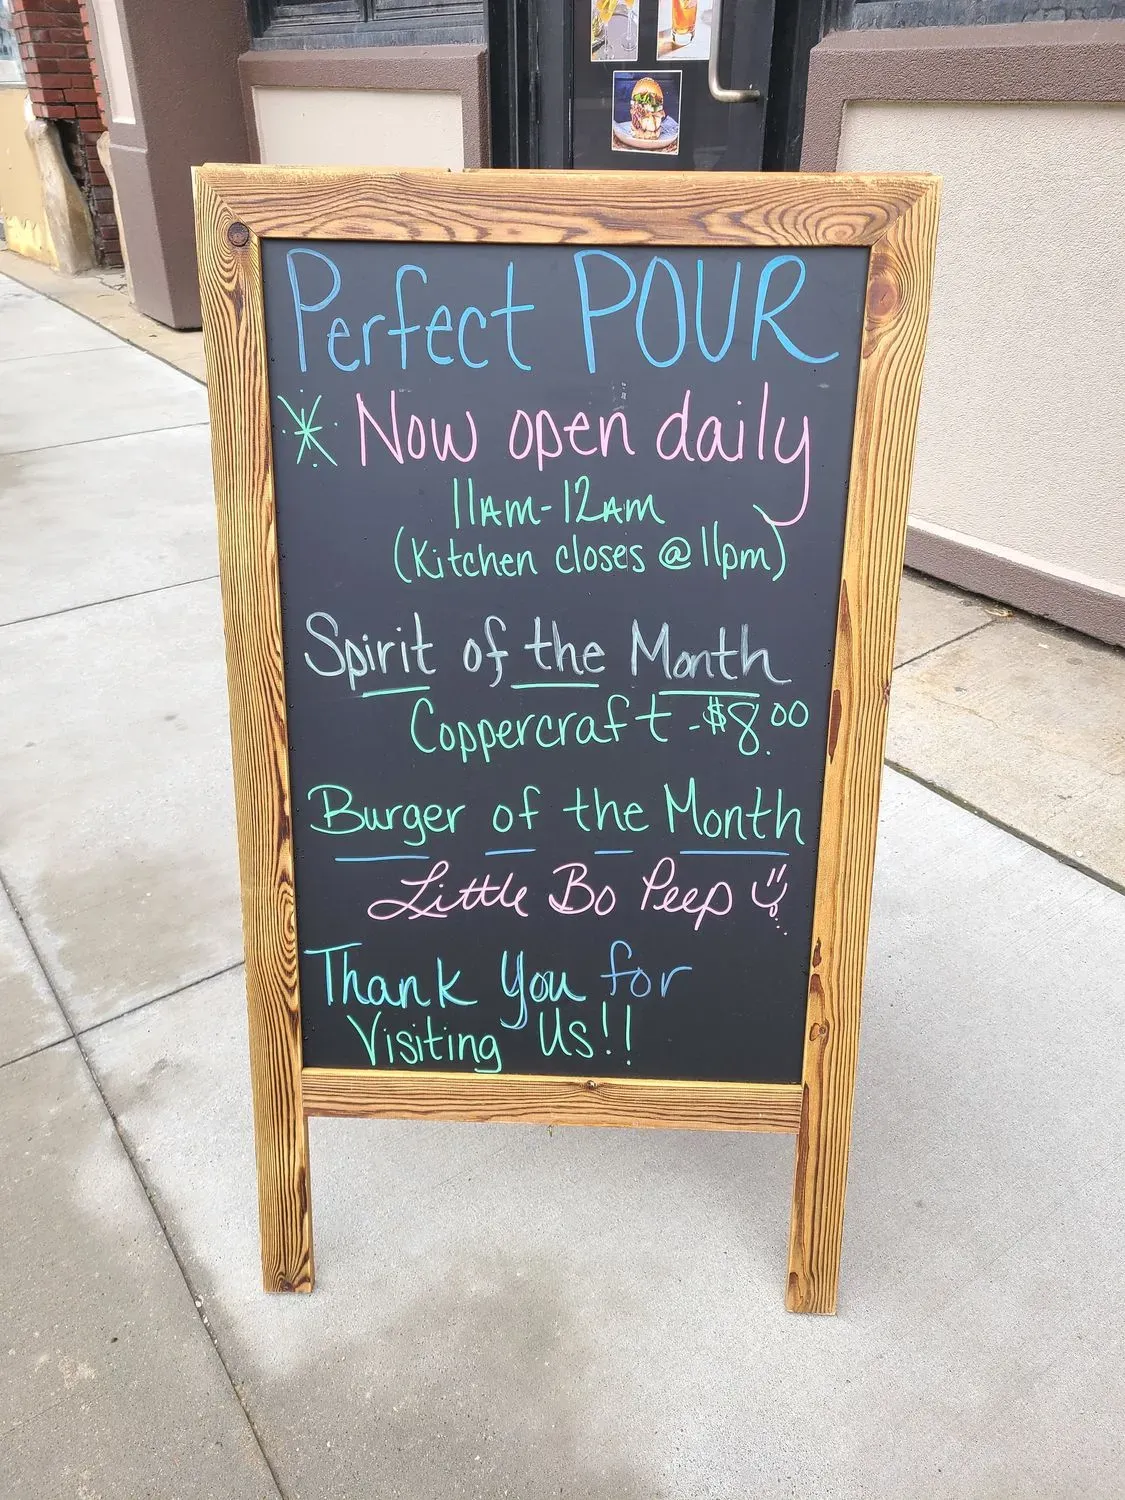 Perfect POUR
Now open daily
11AM-12AM
(Kitchen closes @ 11pm)
Spirit of the Month
Coppercraft - $8.00
Burger of the Month
Little Bo Peep
Thank You for
Visiting Us!!